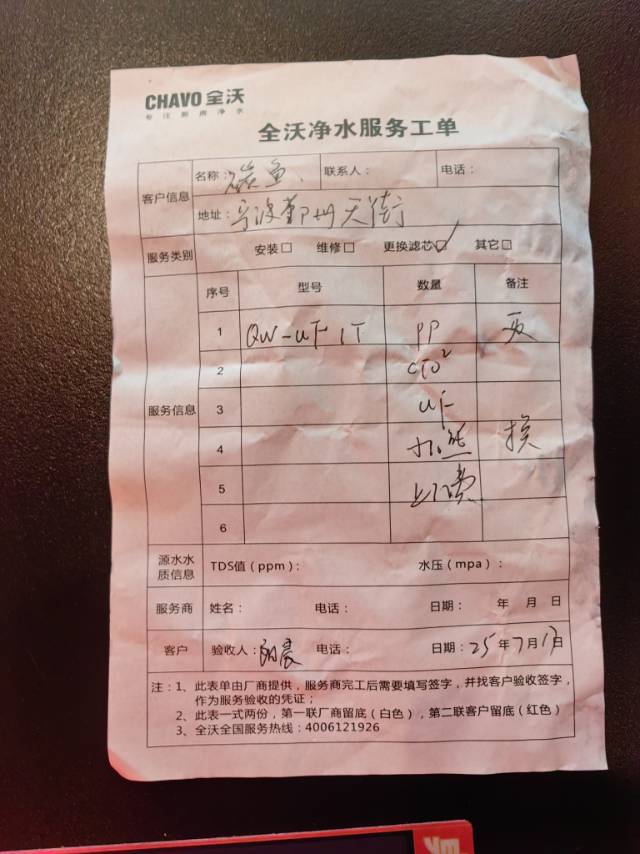 CHAVO 全沃
专注厨房净水
全沃净水服务工单
客户信息 名称： 联系人： 电话：
地址：宁波鄞州天街
服务类别 安装□ 维修□ 更换滤芯☑ 其它□
服务信息 序号 型号 数量 备注
1 QW-UF 1T PP
2 CTO2
3 UF
4 换
5 上门费
6
源水水质信息 TDS值（ppm）： 水压（mpa）：
服务商 姓名： 电话： 日期： 年 月 日
客户 验收人： 电话： 日期：25年7月17日
注：1、此表单由厂商提供，服务商完工后需要填写签字，并找客户验收签字，
作为服务验收的凭证；
2、此表一式两份，第一联厂商留底（白色），第二联客户留底（红色）
3、全沃全国服务热线：4006121926